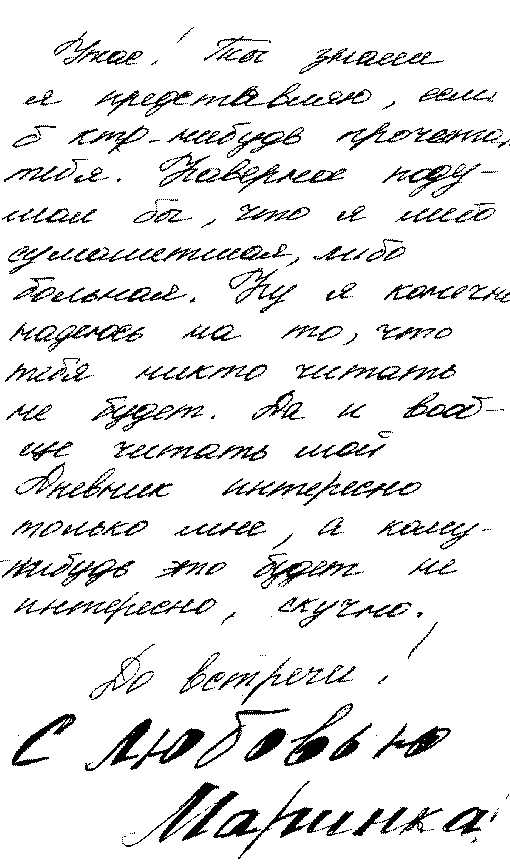 Ужас! Ты знаеш
я представляю, если
б кто-нибудь прочетал
тебя. Наверное поду-
мал бы, что я либо
сумашетшая, либо
больная. Ну я конечно
надеюсь на то, что
тебя никто читать
не будет. Да и вооб-
ще читать мой
Дневник интересно
только мне, а кому-
-нибудь это будет не
интересно, скучно.
До встречи!
С любовью
Маринка!